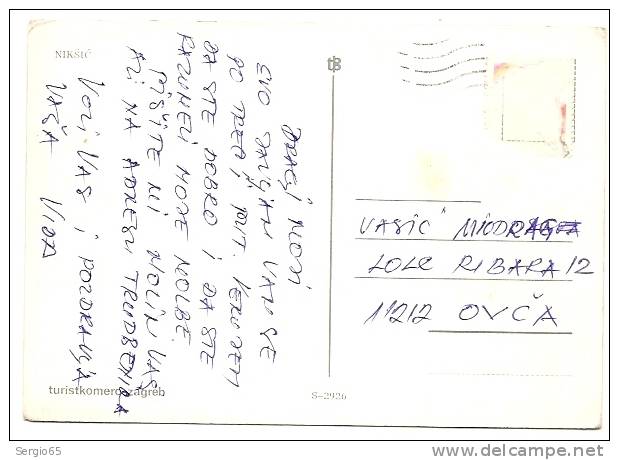 NIKŠIĆ
DRAGI MOJI
EVO JAVLJAM VAM SE
PO DRUGI PUT. VERUJEM
DA STE DOBRO I DA STE
RAZUMELI MOJE MOLBE.
PIŠITE MI MOLIM VAS
ALI NA ADRESU TRUDBENIKA
VOLI VAS I POZDRAVLJA
VAŠA VIDA
turistkomerc zagreb
tb
S-2926
VASIĆ MIODRAGA
LOLE RIBARA 12
11212 OVČA
Sergio65
www.delcampe.net